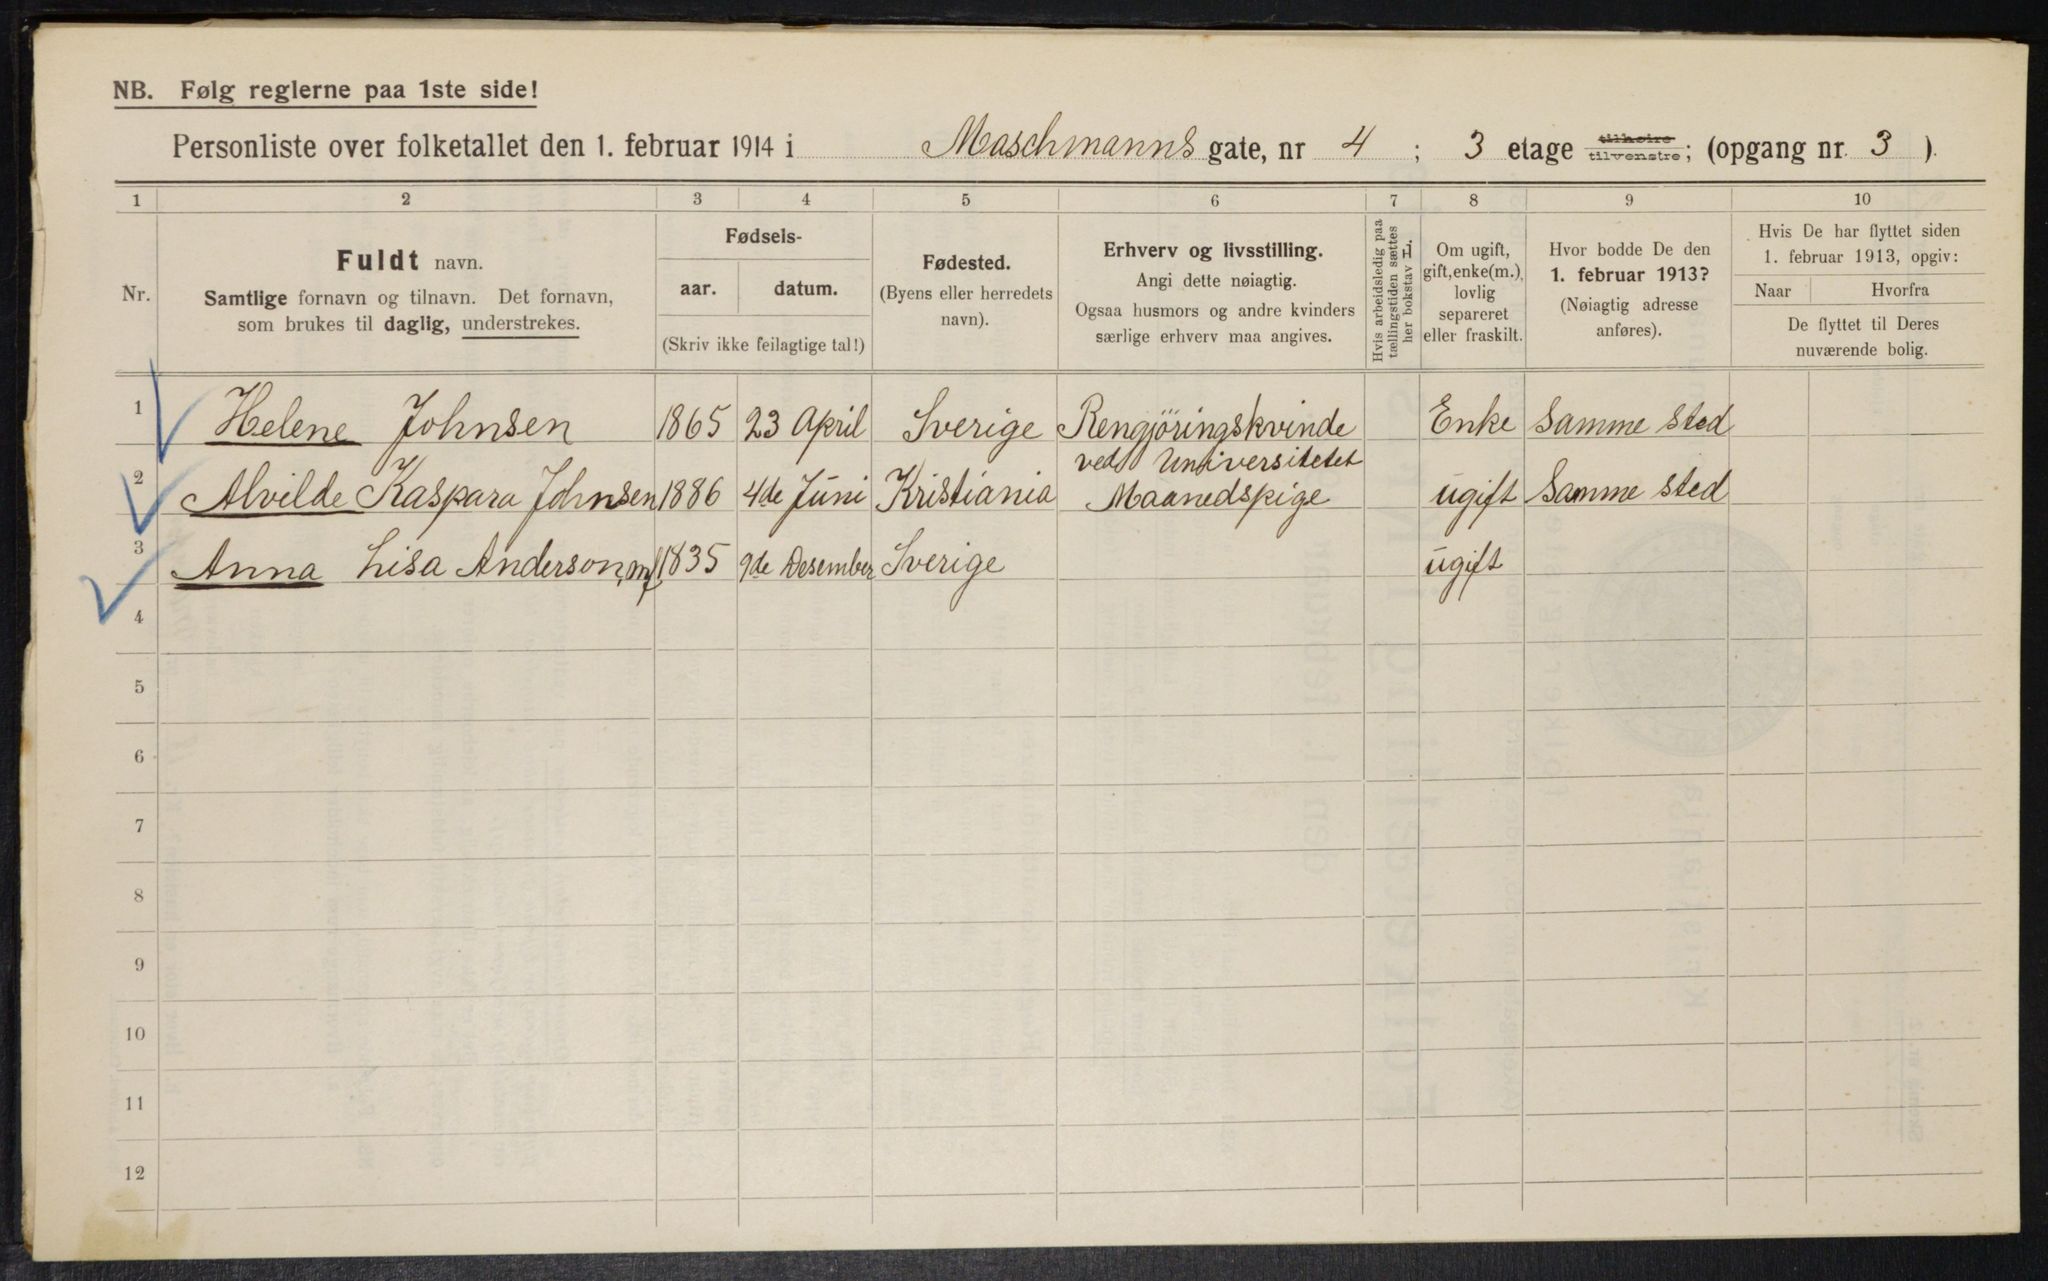 NB. Følg reglerne paa 1ste side!
Personliste over folketallet den 1. februar 1914 i Maschmanns gate, nr 4 ; 3 etage tilhøire tilvenstre; (opgang nr. 3 ).
1 2 3 4 5 6 7 8 9 10
Nr.
Fuldt navn.
Samtlige fornavn og tilnavn. Det fornavn,
som brukes til daglig, understrekes.
Fødsels-
aar. datum.
(Skriv ikke feilagtige tal!)
Fødested.
(Byens eller herredets
navn).
Erhverv og livsstilling.
Angi dette nøiagtig.
Ogsaa husmors og andre kvinders
særlige erhverv maa angives.
Hvis arbeidsledig paa
tællingstiden sættes
her bokstav L.
Om ugift,
gift, enke(m.),
lovlig
separeret
eller fraskilt.
Hvor bodde De den
1. februar 1913?
(Nøiagtig adresse
anføres).
Hvis De har flyttet siden
1. februar 1913, opgiv:
Naar Hvorfra
De flyttet til Deres
nuværende bolig.
1 Helene Johnsen 1865 23 April Sverige Rengjöringskvinde Enke Samme sted
ved Universitetet
2 Alvilde Kaspara Johnsen 1886 4de Juni Kristiania Maanedspige ugift Samme sted
3 Anna Lisa Anderson, 1835 9de Desember Sverige ugift
4
5
6
7
8
9
10
11
12